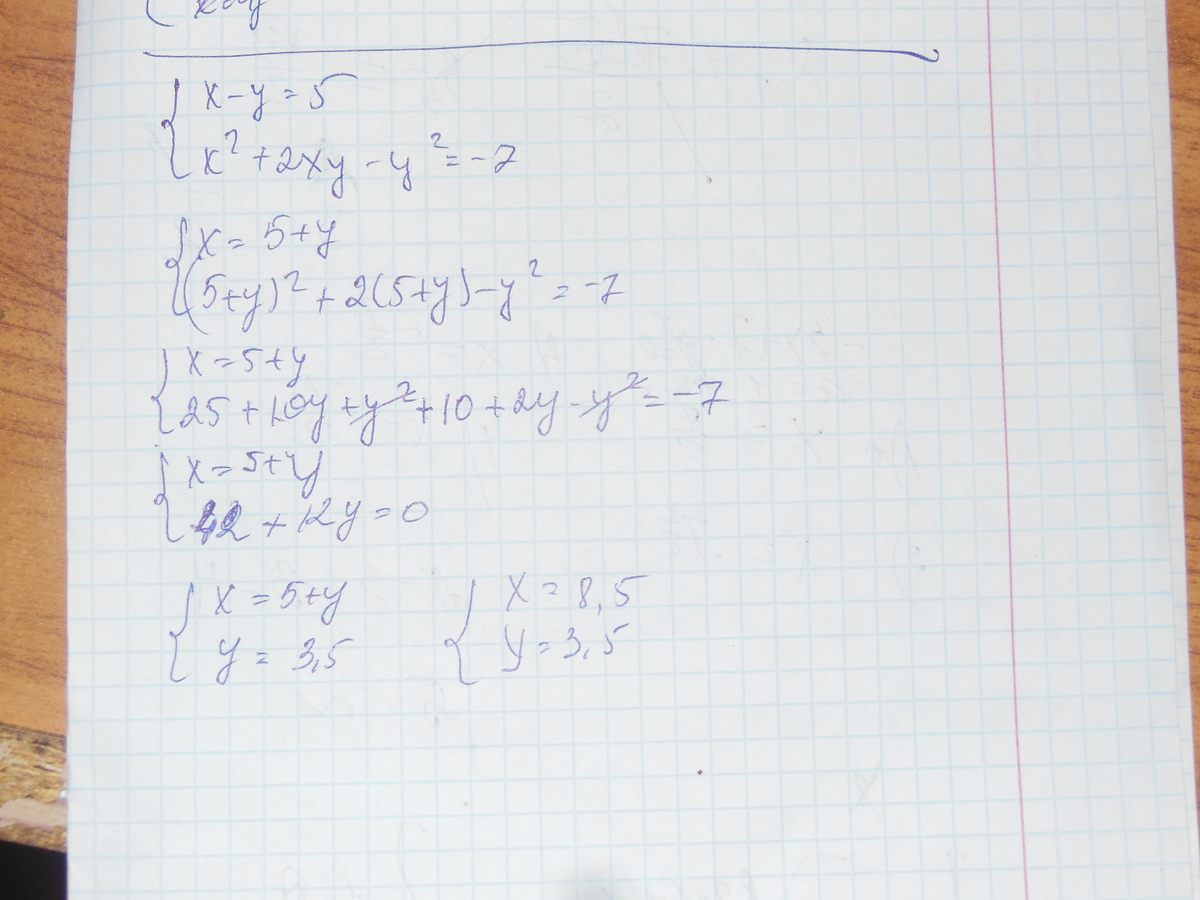 x-y=5
x²+2xy-y²=-7
x=5+y
(5+y)²+2(5+y)-y²=-7
x=5+y
25+10y+y²+10+2y-y²=-7
x=5+y
42+12y=0
x=5+y
y=3,5
x=8,5
y=3,5